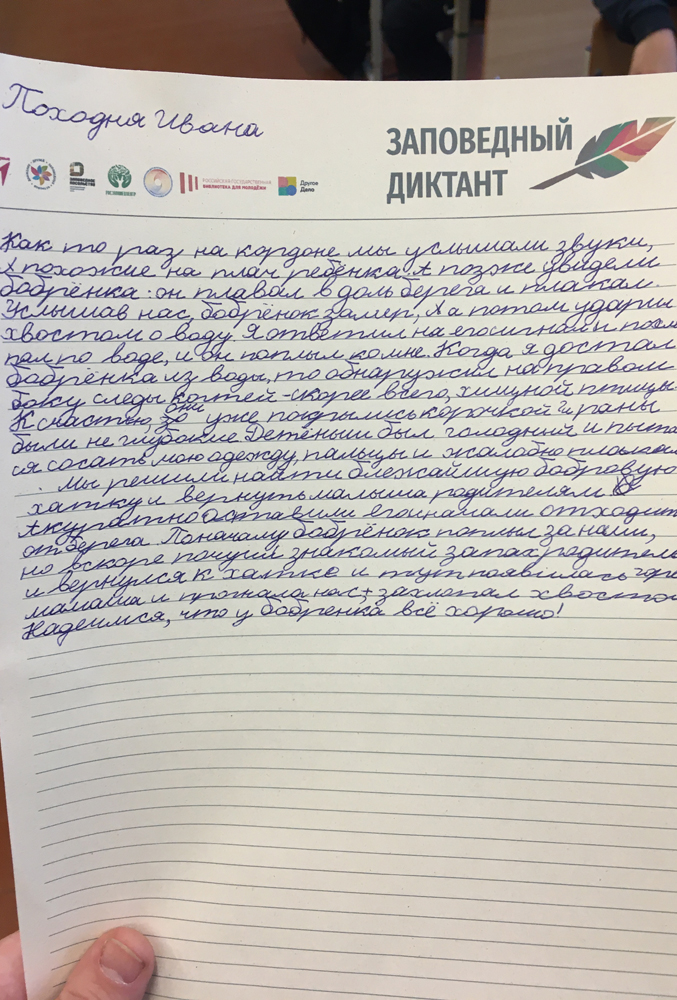 Походня Ивана
ЗАПОВЕДНЫЙ
ДИКТАНТ
РОССИЙСКАЯ ГОСУДАРСТВЕННАЯ
БИБЛИОТЕКА ДЛЯ МОЛОДЁЖИ
Другое
Дело
Как то раз на кордоне мы услышали звуки,
похожие на плач ребёнка. А позже увидели
бобрёнка: он плавал вдоль берега и плакал.
Услышав нас, бобрёнок замер, а потом ударил
хвостом о воду. Я ответил на его сигнал и
пал по воде, и он поплыл ко мне. Когда я достал
бобрёнка из воды, то обнаружил на правом
боку следы когтей - скорее всего, хищной птицы.
К счастью, они уже покрылись корочкой и раны
были не глубокие. Детёныш был голодный и пыта
ся сосать мою одежду, пальцы и жалобно
Мы решили найти ближайшую бобровую
хатку и вернуть малыша родителям
Акуратно оставили его и начали отходит
от берега. Поначалу бобрёнок поплыл за нами,
но вскоре почуял знакомый запах родитель
и вернулся к хатке и тут появилась
мамаша и прогнала нас, захлопал хвостом
Надеимся, что у бобренка всё хорошо!